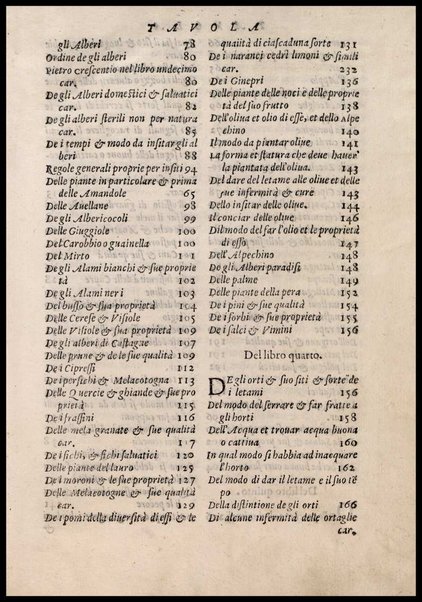 TAVOLA
gli Alberi 78
Ordine de gli alberi 80
Pietro crescentio nel libro undecimo
car. 80
De gli Alberi domestici & saluatici
car. 82
De gli alberi sterili non per natura
car. 85
De i tempi & modo da insitar gli al
beri 88
Regole generali proprie per insiti 94
Delle piante in particolare & prima
delle Amandole 65
Delle Auellane 98
De gli Albericocoli 99
Delle Giuggiole 100
Del Carobbio o guainella 100
Del Mirto 101
De gli Alami bianchi & sue proprie
tà 102
De gli Alami neri 103
Del busso & sua proprietà 104
Delle Cerese & Visiole 105
Delle Visiole & sua proprietà 109
De gli alberi di Castagne 107
Delle prune & de le sue qualità 109
De i Cipressi 112
De i persichi & Melacotogna 113
Delle Quercie & ghiande & sue pro
prietà 115
De i frassini 116
Delle mela granate & sue qualità
car. 117
De i fichi, & fichi saluatici 120
Delle piante del lauro 125
De i moroni & le sue proprietà 127
Delle Melacotogne & sue qualità
car. 129
De i pomi della diuersità di essi & le
qualità di ciascaduna sorte 131
De i naranci cedri limoni & simili
car. 232
De i Ginepri 136
Delle piante delle noci e delle proprie
tà del suo frutto 138
Dell'oliua et olio di esse, et dello Alpe
chino 140
Il modo da piantar oliue 141
La forma et statura che deue hauer
la piantata dell'oliua. 143
Del dare del letame alle oliue et delle
sue infermità & cure 143
Dello insitar delle oliue. 144
Il conciar delle oliue 146
Dil modo del far l'olio et le proprietà
di esso 147
Dell'Alpechino 148
De gli Alberi paradisi 148
Delle palme 149
Delle piante della pera 152
De i pini & sue qualità 154
De i sorbi & sue proprietà 155
De i salci & Vimini 156
Del libro quarto.
DE gli orti & suo siti & sorte de
i letami 156
Del modo del serrare & far fratte a
gli horti 158
Dell'Acqua et trouar acqua buona
o cattiua 160
In qual modo si habbia ad inacquare
l'horto 162
Del modo di dar il letame e il suo tē
po
Della distintione de gli orti 166
Di alcune infermità delle ortaglie
car.